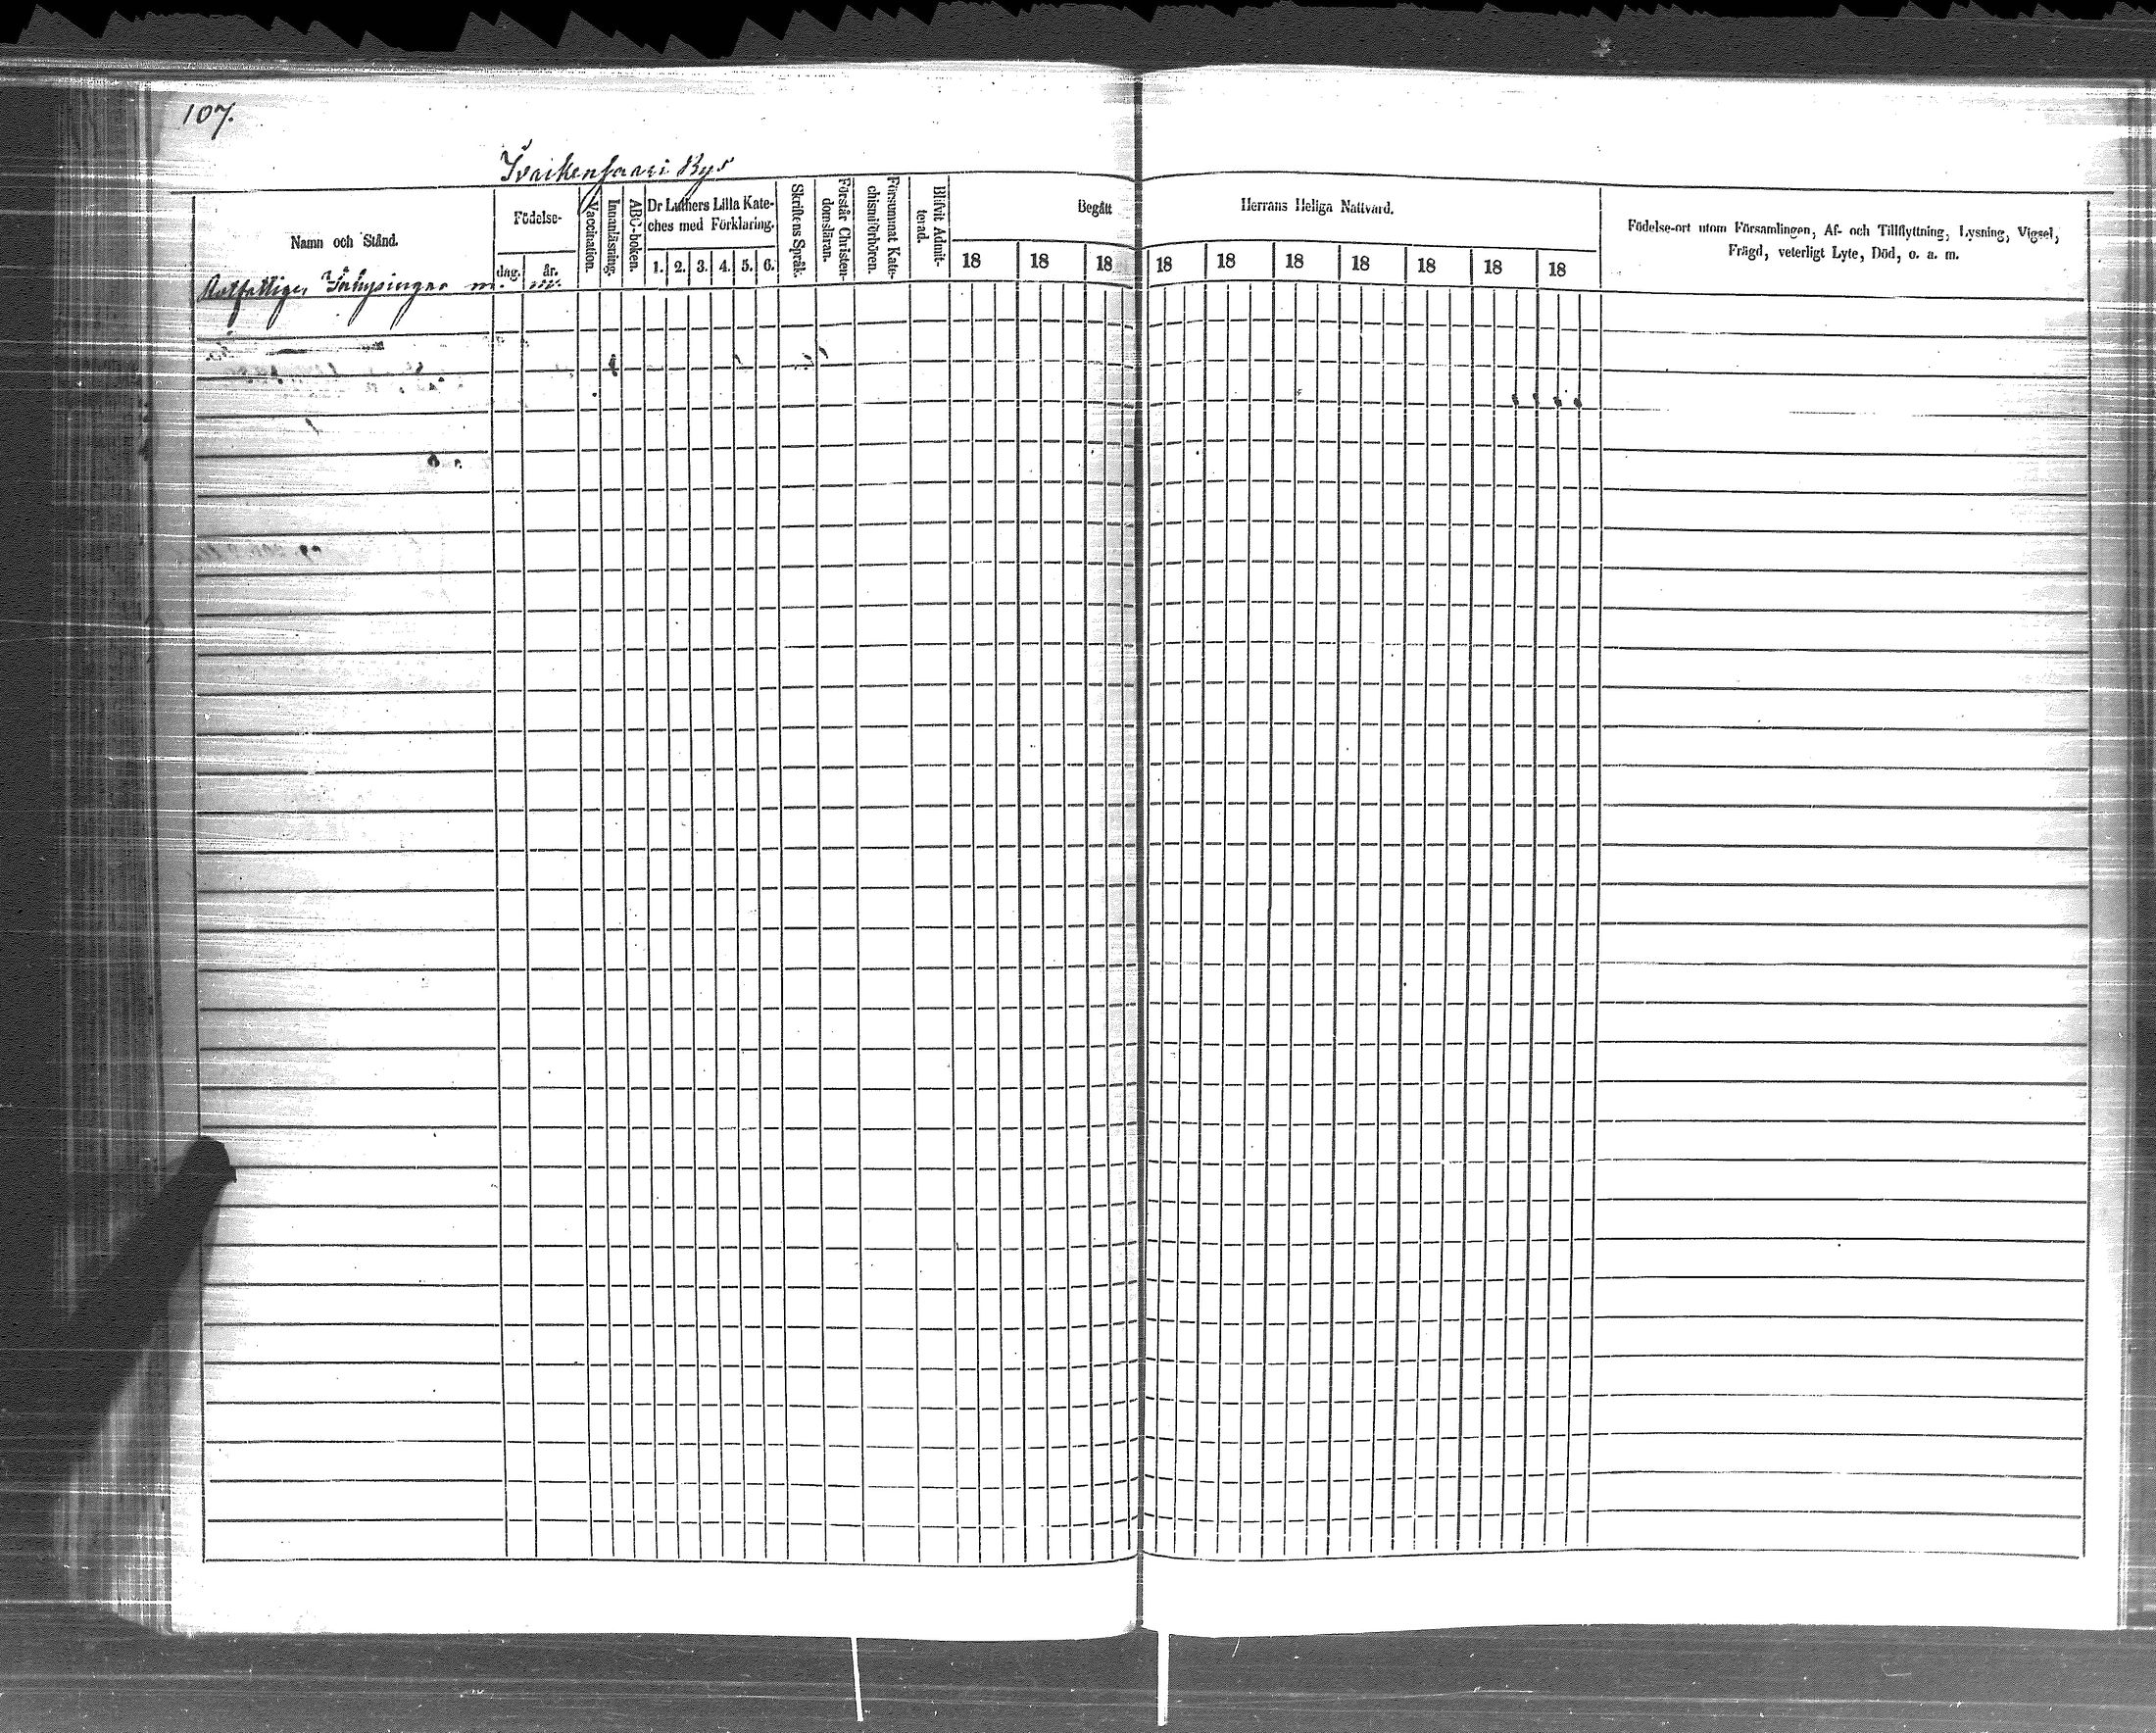 107.
Svaikenfaari By
Namn och Stånd.
Födelse-
dag.
år.
Vaccination.
Innanläsning.
ABC-boken.
Dr Luthers Lilla Kate-
ches med Förklaring.
1. 2. 3. 4. 5. 6.
Skriftens Språk.
Förstår Christen-
domsläran.
Försummat Kate-
chismiförhören.
Blifvit Admit-
terad.
Begått Herrans Heliga Nattvard.
18 18 18 18 18 18 18 18 18 18
Födelse-ort utom Församlingen, Af- och Tillflyttning, Lysning, Vigsel,
Frägd, veterligt Lyte, Död, o. a. m.
Rotfattige, Inhysingar m.